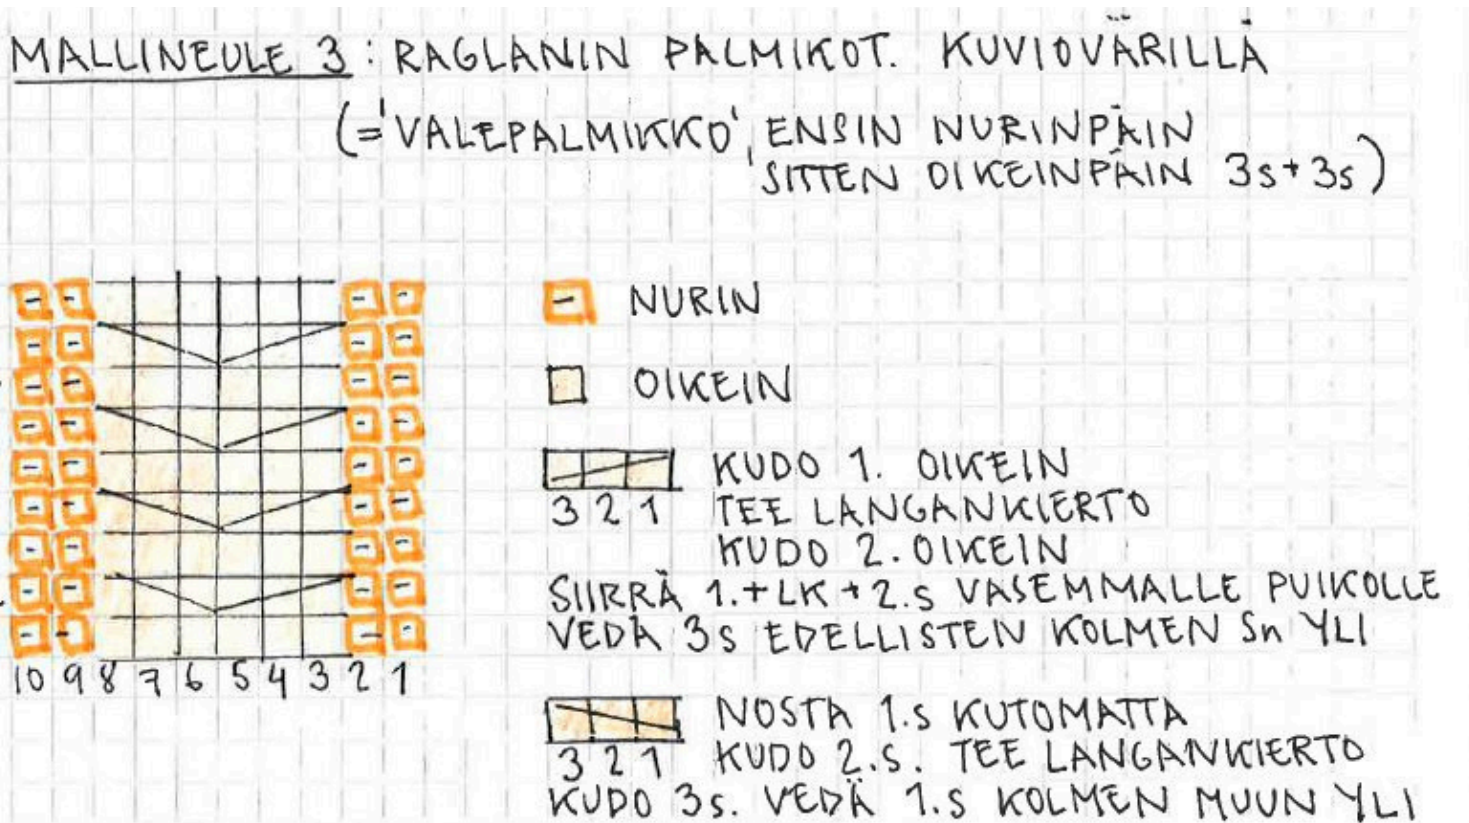 MALLINEULE 3: RAGLANIN PALMIKOT. KUVIOVÄRILLÄ
(='VALEPALMIKKO', ENSIN NURINPÄIN
SITTEN OIKEINPÄIN 3s+3s)
- NURIN
OIKEIN
KUDO 1. OIKEIN
3 2 1 TEE LANGANKIERTO
KUDO 2. OIKEIN
SIIRRÄ 1.+LK+2.S VASEMMALLE PUIKOLLE
VEDÄ 3s EDELLISTEN KOLMEN Sn YLI
10 9 8 7 6 5 4 3 2 1
NOSTA 1.s KUTOMATTA
3 2 1 KUDO 2.s. TEE LANGANKIERTO
KUDO 3s. VEDÄ 1.s KOLMEN MUUN YLI